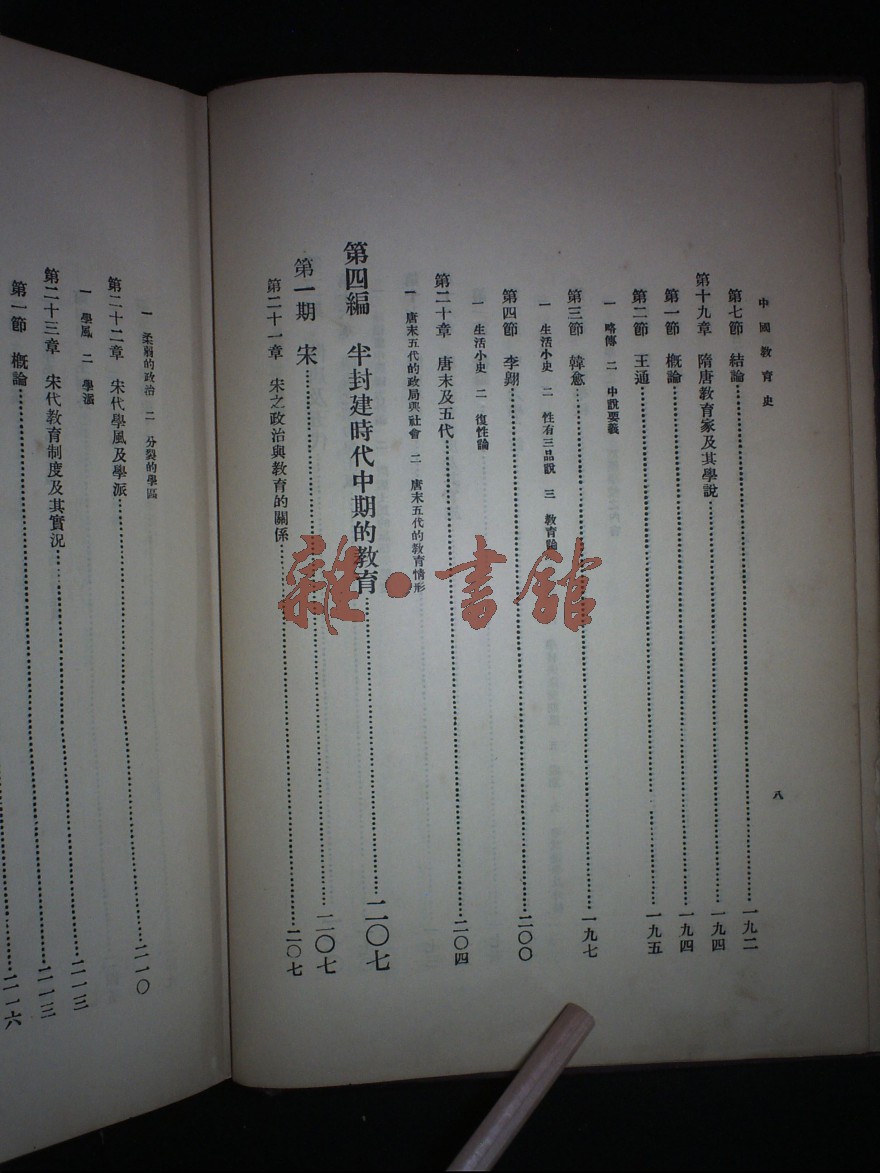 中國教育史
八
第七節 結論……一九二
第十九章 隋唐教育家及其學說……一九四
第一節 概論……一九四
第二節 王通……一九五
一 略傳 二 中說要義
第三節 韓愈……一九七
一 生活小史 二 性有三品說 三 教育論
第四節 李翺……二〇〇
一 生活小史 二 復性論
第二十章 唐末及五代……二〇四
一 唐末五代的政局與社會 二 唐末五代的教育情形
第四編 半封建時代中期的教育……二〇七
第一期 宋……二〇七
第二十一章 宋之政治與教育的關係……二〇七
一 柔弱的政治 二 分裂的學區……二一〇
第二十二章 宋代學風及學派
一 學風 二 學派……二一三
第二十三章 宋代教育制度及其實況……二一三
第一節 概論……二一六
雜·書館